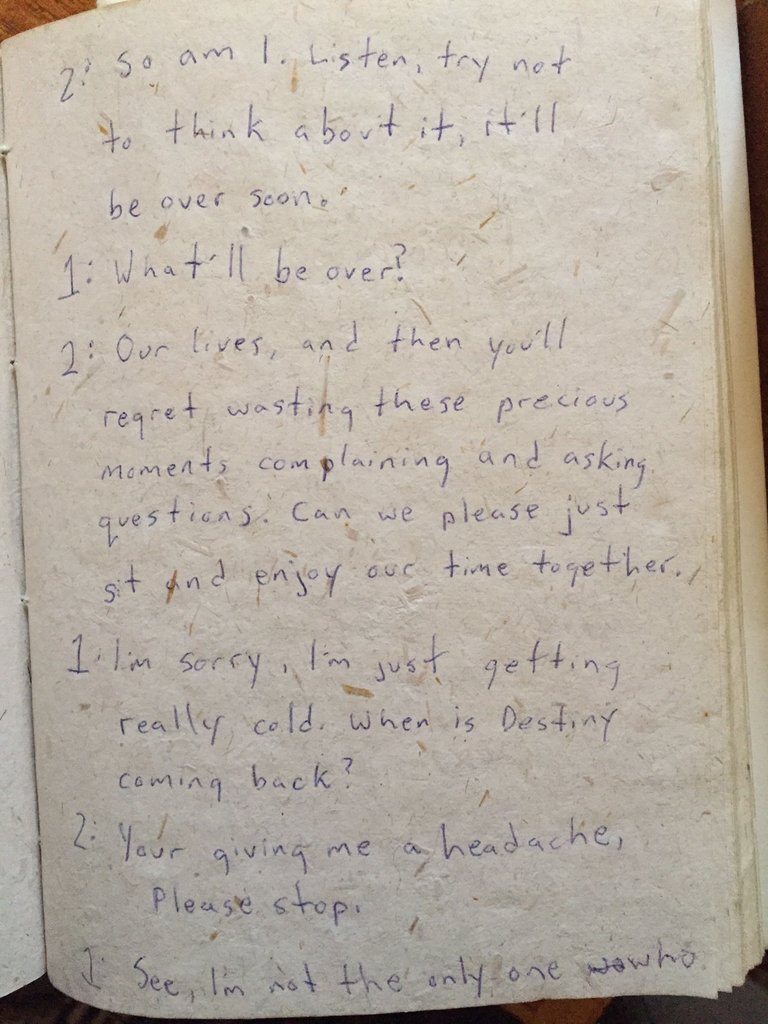 2: So am I. Listen, try not
to think about it, it'll
be over soon.
1: What'll be over?
2: Our lives, and then you'll
regret wasting these precious
moments complaining and asking
questions. Can we please just
sit and enjoy our time together.
1: I'm sorry, I'm just getting
really cold. When is Destiny
coming back?
2: Your giving me a headache,
Please stop.
1: See, I'm not the only one who